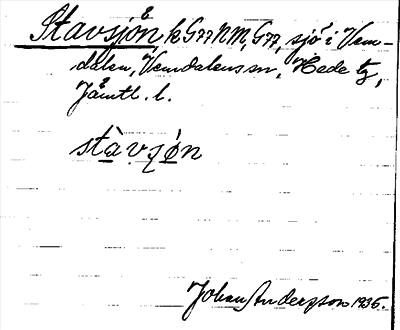 Stavsjön, k G77 NM, G77, sjö i Vem-
dalen, Vemdalens sn, Hede tg,
Jämtl. l.
stàvʂø̀n
Johan Andersson 1936.